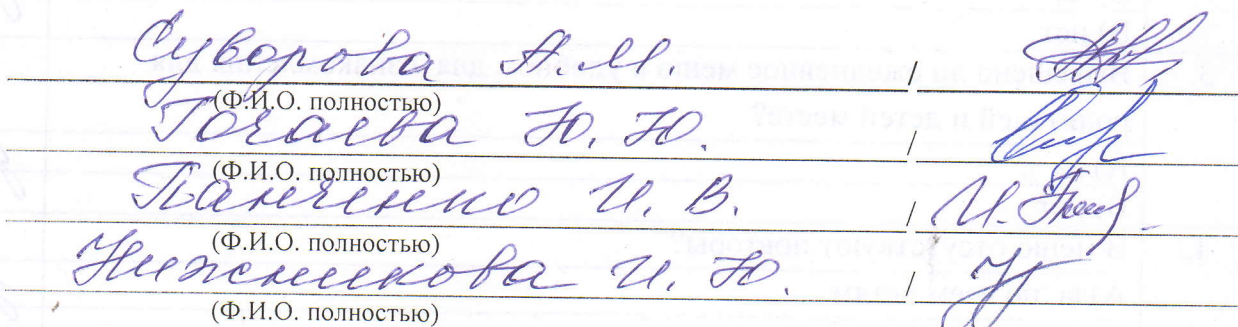 Суворова А.М. /
(Ф.И.О. полностью)
Гочаева Ю. Ю. /
(Ф.И.О. полностью)
Панченко И. В. /
(Ф.И.О. полностью)
Нижникова И. Ю. /
(Ф.И.О. полностью)